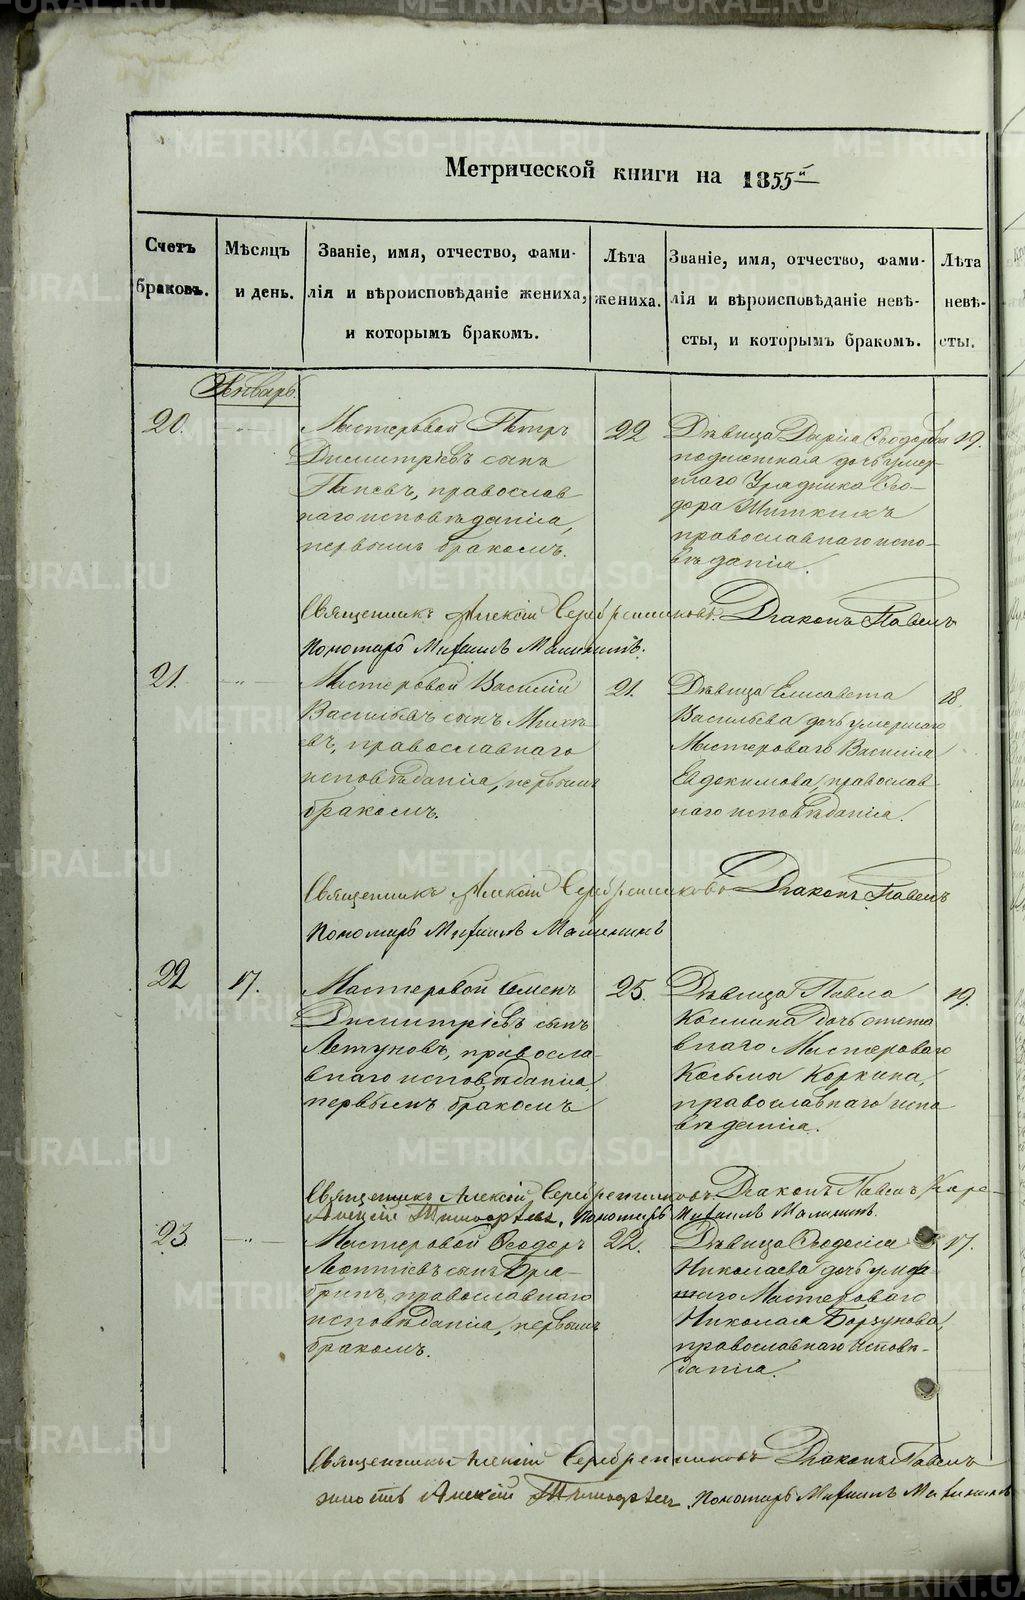 Метрической книги на 1855й
Счетъ браковъ.
Мѣсяцъ и день.
Званіе, имя, отчество, фами-
лія и вѣроисповѣданіе жениха,
и которымъ бракомъ.
Лѣта жениха.
Званіе, имя, отчество, фами-
лія и вѣроисповѣданіе невѣ-
сты, и которымъ бракомъ.
Лѣта невѣ-
сты.
Январь.
20.
Мастеровой Петръ
Димитріевъ сынъ
православ
наго исповѣданія,
первымъ бракомъ.
22
Дѣвица Дарія Ѳеодорова
дочь умер-
шаго Урядника Ѳео-
дора
православнаго испо-
вѣданія.
19.
Священникъ Алексій Серебренниковъ. Діаконъ Павелъ
Пономарь Михаилъ Малининъ.
21.
Мастеровой Василій
Васильевъ сынъ
евъ, православнаго
исповѣданія, первымъ
бракомъ.
21.
Дѣвица Елисавета
Васильева дочь умершаго
Мастероваго Василія
Евдокимова, православ-
наго исповѣданія.
18.
Священникъ Алексій Серебренниковъ Діаконъ Павелъ
Пономарь Михаилъ Малининъ
22
17.
Мастеровой Семенъ
Димитріевъ сынъ
Летуновъ, правосла-
внаго исповѣданія,
первымъ бракомъ
25.
Дѣвица Павла
Космина дочь отста
внаго Мастероваго
Косьмы Коркина,
православнаго испо
вѣданія.
19.
Священникъ Алексій Серебренниковъ. Діаконъ Павелъ
Алексій Тимоѳеевъ, Пономарь Михаилъ Малининъ.
23
Мастеровой Ѳеодоръ
Леонтіевъ сынъ
православнаго
исповѣданія, первымъ
бракомъ.
22.
Дѣвица Ѳеодосія
Николаева дочь умер
шаго Мастероваго
Николая Борзунова,
православнаго исповѣ-
данія.
17.
Священникъ Алексій Серебренниковъ Діаконъ Павелъ
Алексій Тимоѳеевъ Пономарь Михаилъ Малининъ
METRIKI.GASO-URAL.RU